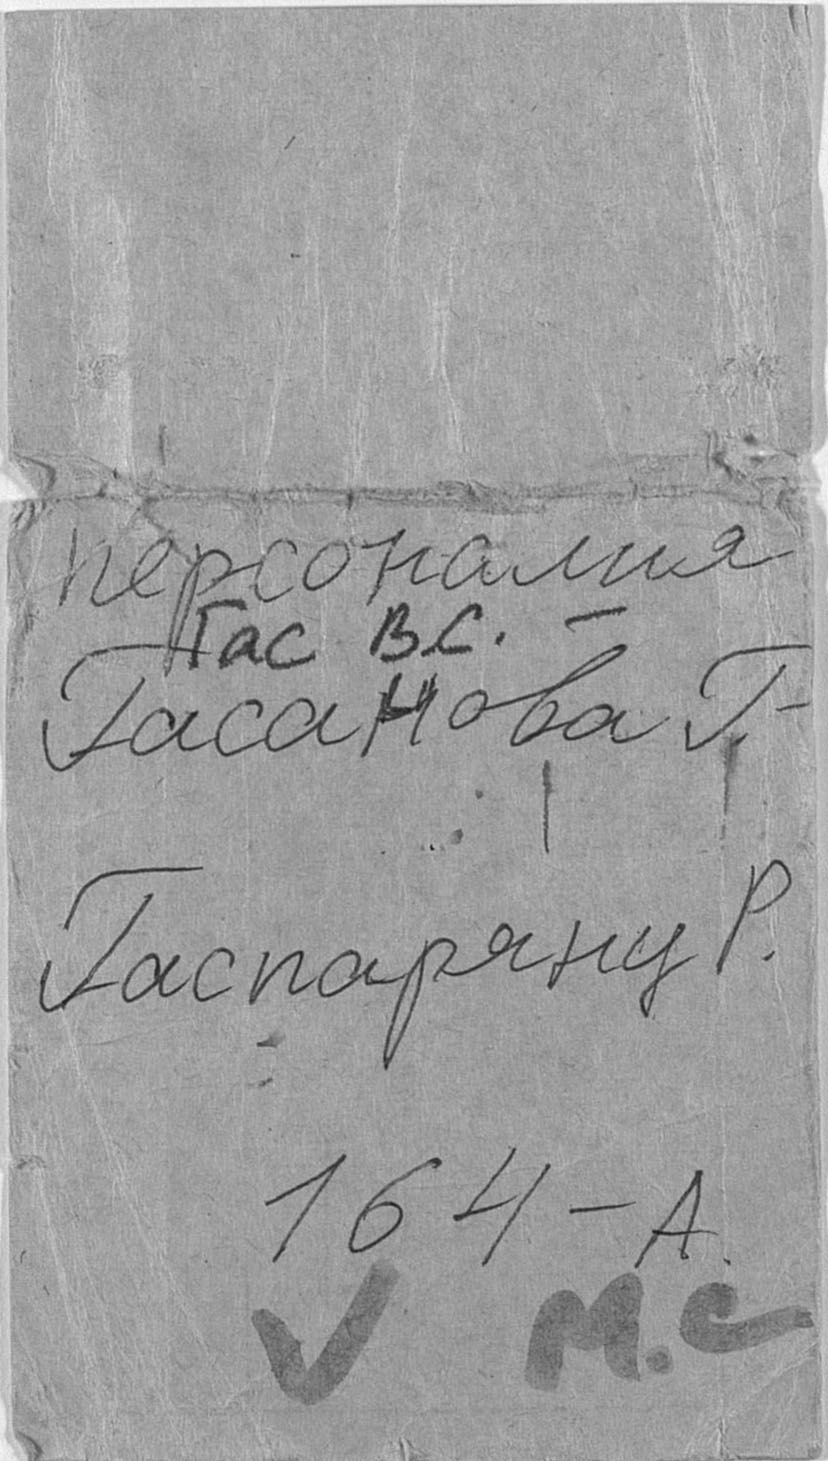 персоналия
Гас В.С. –
Гасанова Г.
Гаспаряну Р.
164-А
М.С